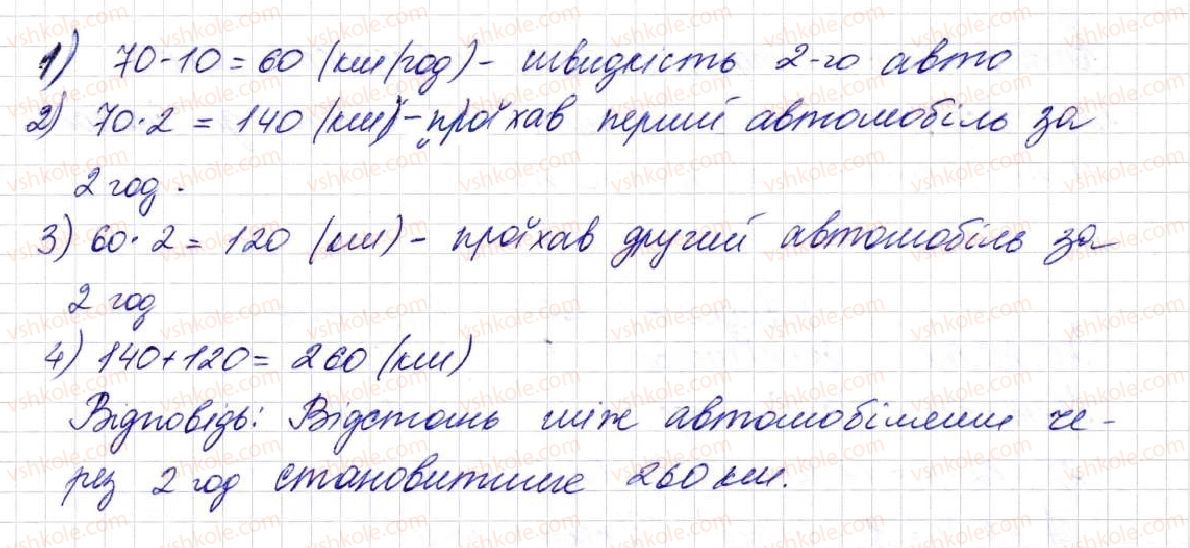 1) 70-10=60 (км/год) - швидкість 2-го авто
2) 70·2 = 140 (км) - проїхав перший автомобіль за
2 год.
3) 60·2 = 120 (км) - проїхав другий автомобіль за
2 год
4) 140+120= 260 (км)
Відповідь: Відстань між автомобілями че-
рез 2 год становитиме 260 км.